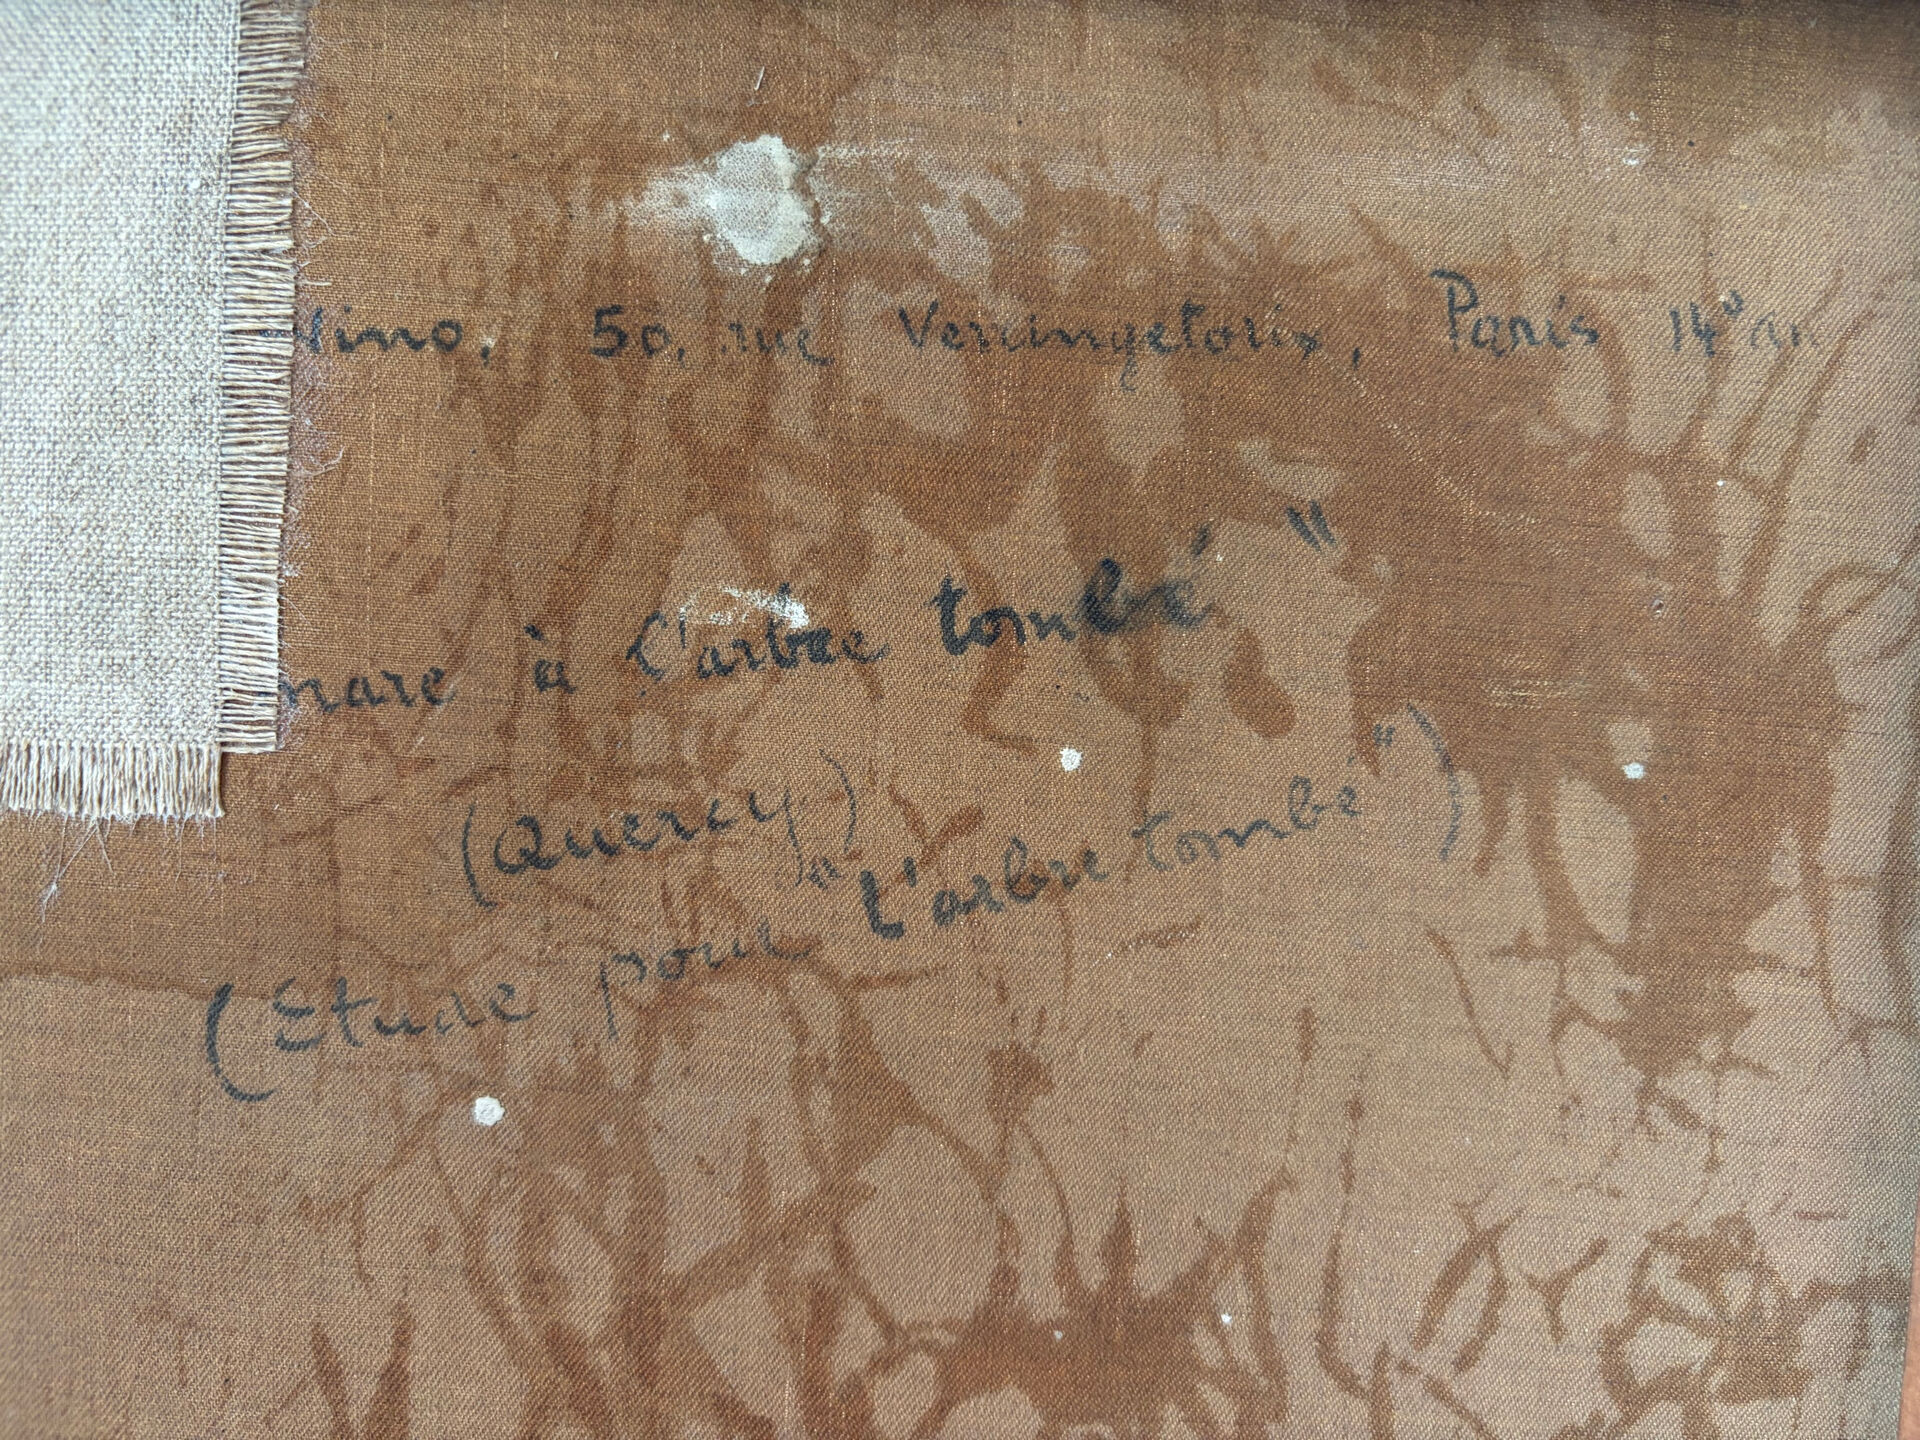 Nino, 50, rue Vercingetorix, Paris 14e
mare à l'arbre tombé"
(Quercy)
(Etude pour "l'arbre tombé")